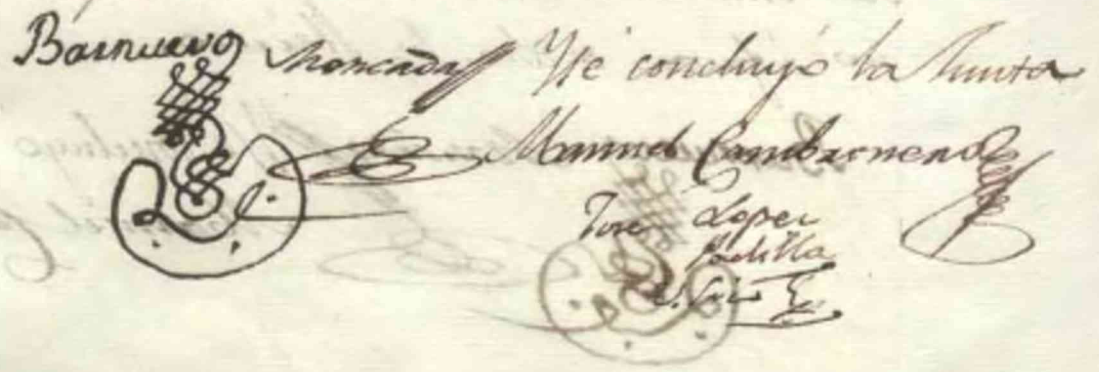 Barnuevo Moncada Y se concluyó la Junta
Manuel Cambronero
José Lopez
Padilla